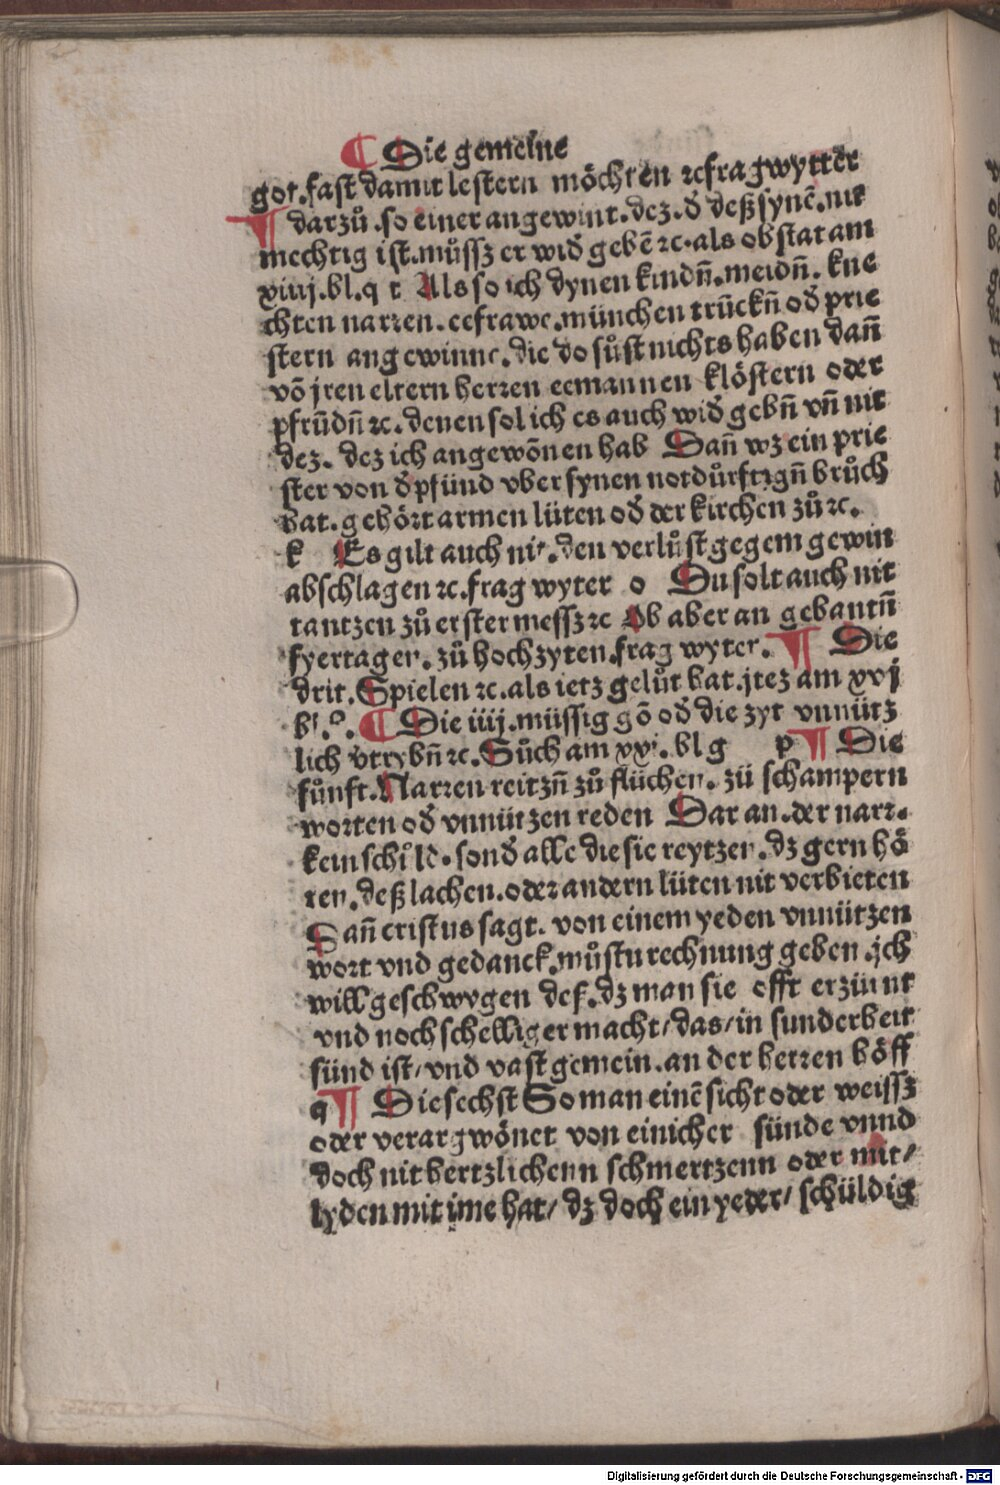 ¶ Die gemeine
got.fast damit lestern möchten ⁊cfrag wytter
¶ darzů.so einer angewint.dez.đ deß synē.nit
mechtig ist.můssz er wiđ gebē ⁊c.als ob stat am
xiiij.bl.q r Als so ich dynen kindn̄.meidn̄.kne
chten narren.eefrawe.münchen trückn̄ ođ prie
stern angewinne.die do sůst nichts haben dan̄
võ jren eltern herren eemannen klöstern oder
pfrůdn̄ ⁊c.denen sol ich es auch wiđ gebn̄ vn̄ nit
dez.dez ich angewōnen hab Dan̄ wz ein prie
ster von đ pfünd vber synen notdůrftign̄ brůch
hat.gehört armen lüten ođ der kirchen zů ⁊c.
k Es gilt auch nit.den verlůst gegem gewin
abschlagen ⁊c.frag wyter o Du solt auch nit
tantzen zů erster messz ⁊c Ob aber an gebantn̄
fyertagen.zů hochzyten.frag wyter. ¶ Die
drit.Spielen ⁊c.als ietz gelůt hat.jtez am xvj
bl.o. ¶ Die iiij.müssig gō ođ die zyt vnnütz
lich v̄trybn̄ ⁊c.Sůch am xxi.bl g p ¶ Die
fůnft.Narren reitzn̄ zů flüchen.zü schampern
worten ođ vnnützen reden Dar an.der narr.
kein schůld.sonđ alle die sie reytzen.dz gern hö
ren.deß lachen.oder andern lüten nit verbieten
Dan̄ cristus sagt.von einem yeden vnnützen
wort vnd gedanck.můstu rechnung geben.jch
will geschwygen deß.dz man sie offt erzürnt
vnd noch schelliger macht/das/in sunderheit
sünd ist/vnd vast gemein.an der herren höff
q ¶ Die sechst So man einē sicht oder weissz
oder verargwönet von einicher sünde vnnd
doch nit hertzlichenn schmertzenn oder mit/
lyden mit ime hat/dz doch ein yeder/schüldig
Digitalisierung gefördert durch die Deutsche Forschungsgemeinschaft - DFG